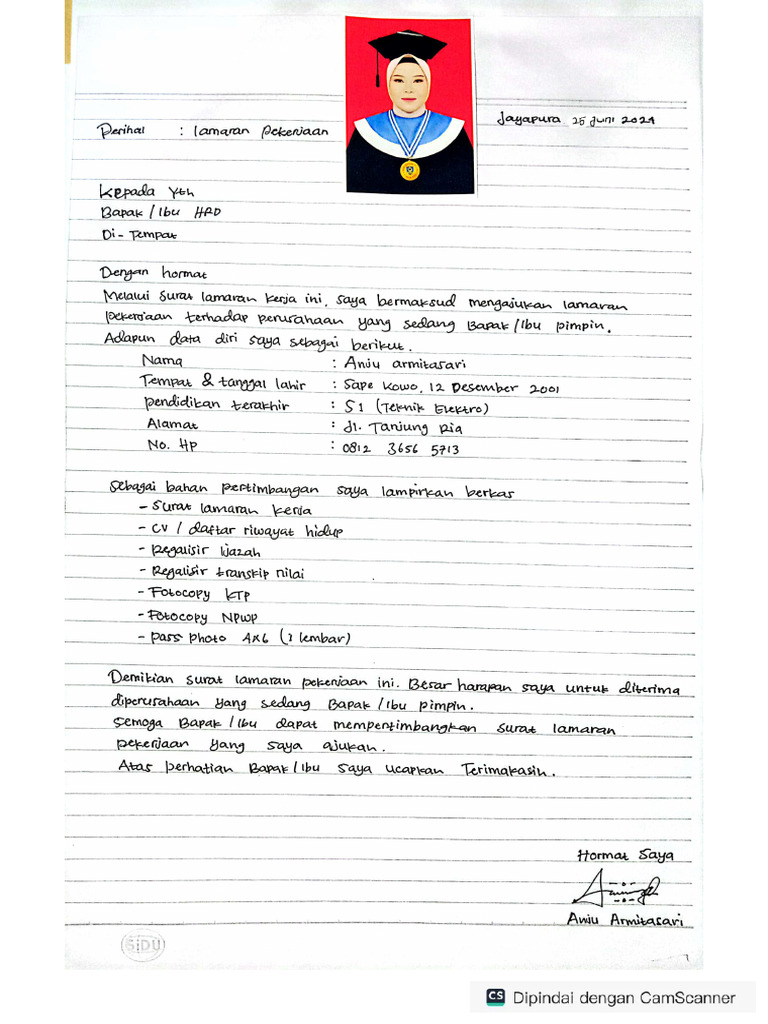 Jayapura 25 Juni 2024
Perihal : lamaran pekerjaan
Kepada Yth
Bapak / Ibu HRD
Di - Tempat
Dengan hormat
Melalui surat lamaran kerja ini, saya bermaksud mengajukan lamaran
pekerjaan terhadap perusahaan yang sedang Bapak / Ibu pimpin.
Adapun data diri saya sebagai berikut.
Nama : Anju armitasari
Tempat & tanggal lahir : Sape Kowo, 12 Desember 2001
pendidikan terakhir : S1 (Teknik Elektro)
Alamat : Jl. Tanjung Ria
No. HP : 0812 3656 5713
Sebagai bahan pertimbangan saya lampirkan berkas
- Surat lamaran kerja
- CV / daftar riwayat hidup
- Regalisir ijazah
- Regalisir transkip nilai
- Fotocopy KTP
- Fotocopy NPWP
- pass photo 4x6 (2 lembar)
Demikian surat lamaran pekerjaan ini. Besar harapan saya untuk diterima
diperusahaan yang sedang Bapak / Ibu pimpin.
Semoga Bapak / Ibu dapat mempertimbangkan surat lamaran
pekerjaan yang saya ajukan.
Atas perhatian Bapak / Ibu saya ucapkan Terimakasih.
Hormat Saya
Anju Armitasari
SiDU
CS Dipindai dengan CamScanner